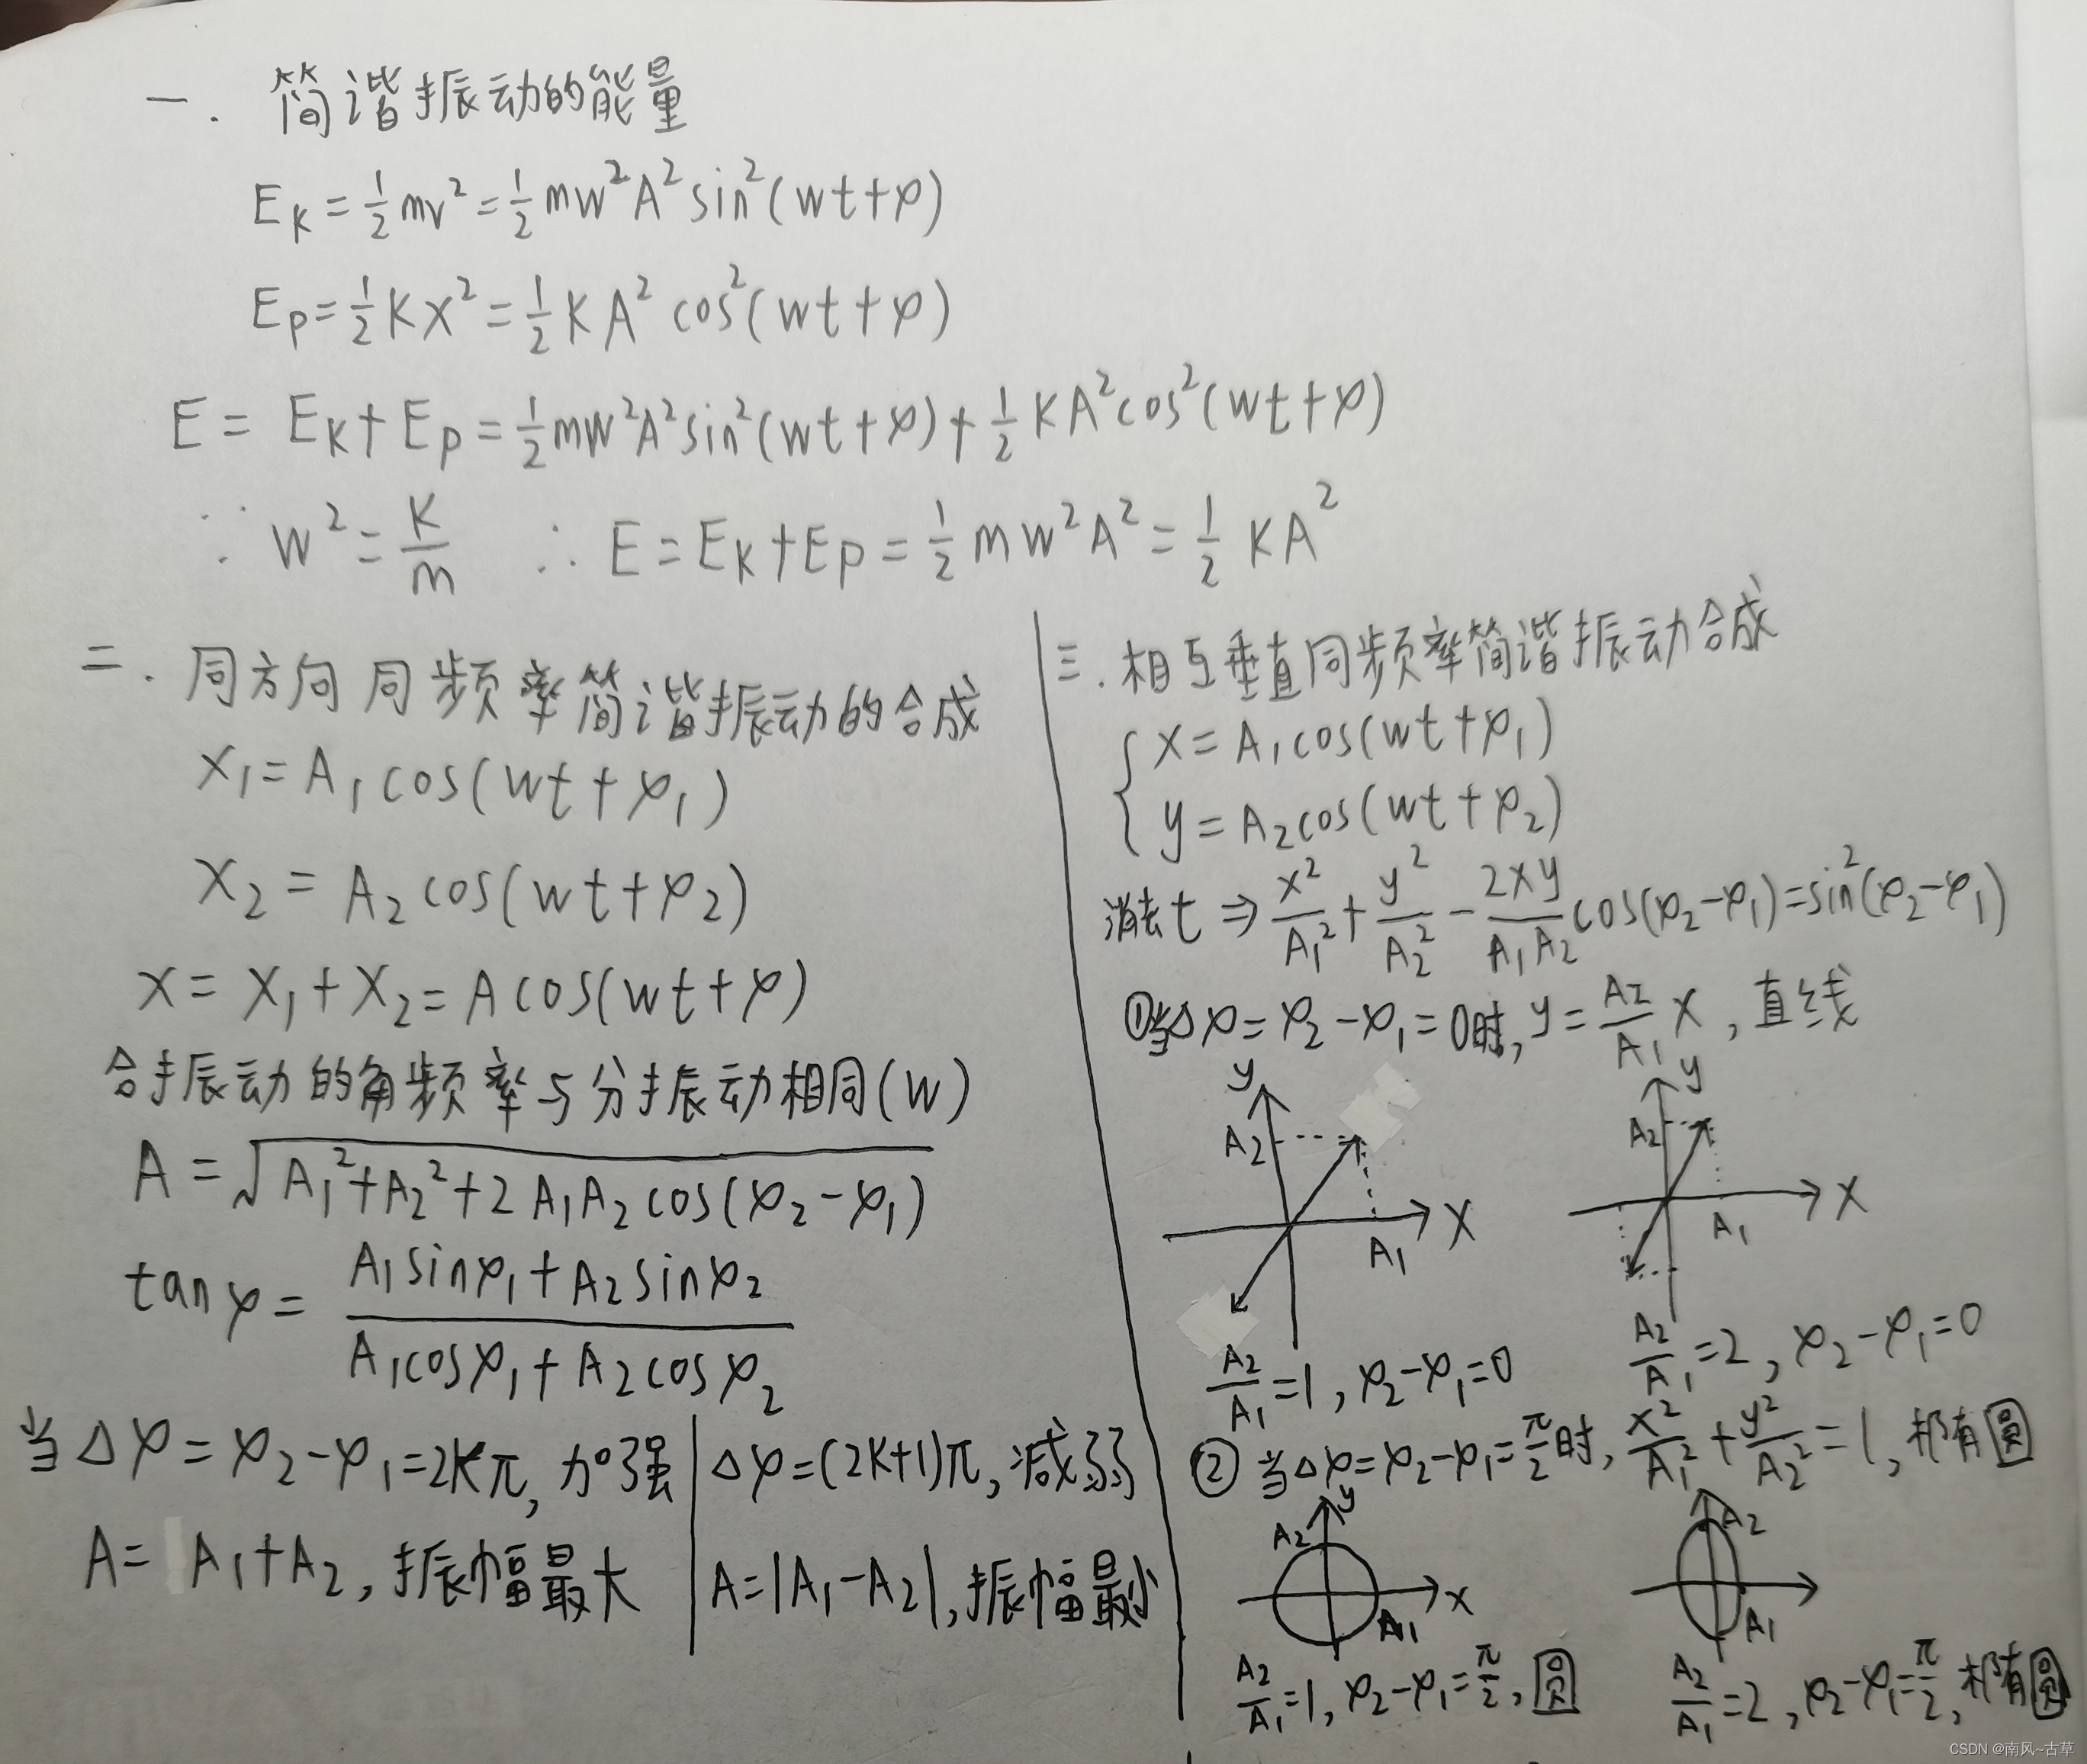 一. 简谐振动的能量
E_K = 1/2 mv² = 1/2 mw²A² sin²(wt+φ)
E_P = 1/2 Kx² = 1/2 KA² cos²(wt+φ)
E = E_K + E_P = 1/2 mw²A² sin²(wt+φ) + 1/2 KA² cos²(wt+φ)
∵ w² = K/m ∴ E = E_K + E_P = 1/2 mw²A² = 1/2 KA²
二. 同方向同频率简谐振动的合成
x₁ = A₁cos(wt+φ₁)
x₂ = A₂cos(wt+φ₂)
x = x₁+x₂ = Acos(wt+φ)
合振动的角频率与分振动相同(w)
A = √(A₁²+A₂²+2A₁A₂cos(φ₂-φ₁))
tanφ = (A₁sinφ₁+A₂sinφ₂)/(A₁cosφ₁+A₂cosφ₂)
当Δφ=φ₂-φ₁=2Kπ, 加强
A= A₁+A₂, 振幅最大
Δφ=(2K+1)π, 减弱
A=|A₁-A₂|, 振幅最小
三. 相互垂直同频率简谐振动合成
{ x = A₁cos(wt+φ₁)
y = A₂cos(wt+φ₂)
消去t ⇒ x²/A₁² + y²/A₂² - 2xy/A₁A₂ cos(φ₂-φ₁) = sin²(φ₂-φ₁)
①当Δφ=φ₂-φ₁=0时, y = A₂/A₁ x, 直线
y
A₂
A₁
x
A₂/A₁=1, φ₂-φ₁=0
y
A₂
A₁
x
A₂/A₁=2, φ₂-φ₁=0
②当Δφ=φ₂-φ₁=π/2时, x²/A₁² + y²/A₂² = 1, 椭圆
y
A₂
A₁
x
A₂/A₁=1, φ₂-φ₁=π/2, 圆
A₂
A₁
A₂/A₁=2, φ₂-φ₁=π/2, 椭圆
CSDN @南风~古草